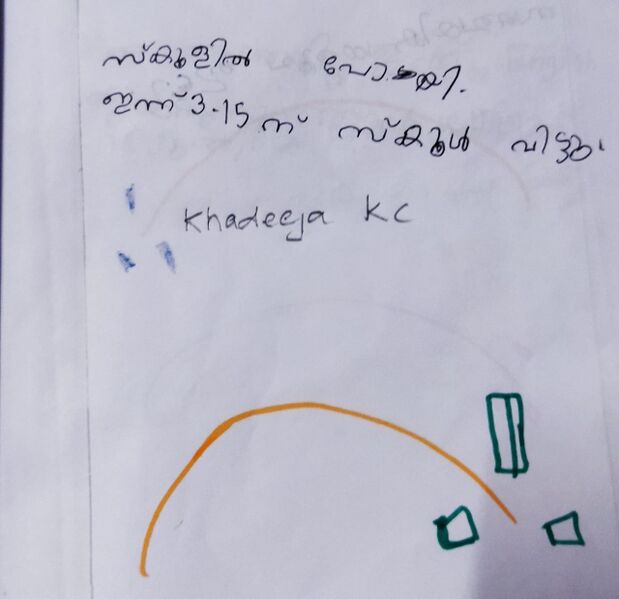 സ്കൂളിൽ പോയി.
ഇന്ന് 3.15 ന് സ്കൂൾ വിട്ടു.
Khadeeja KC